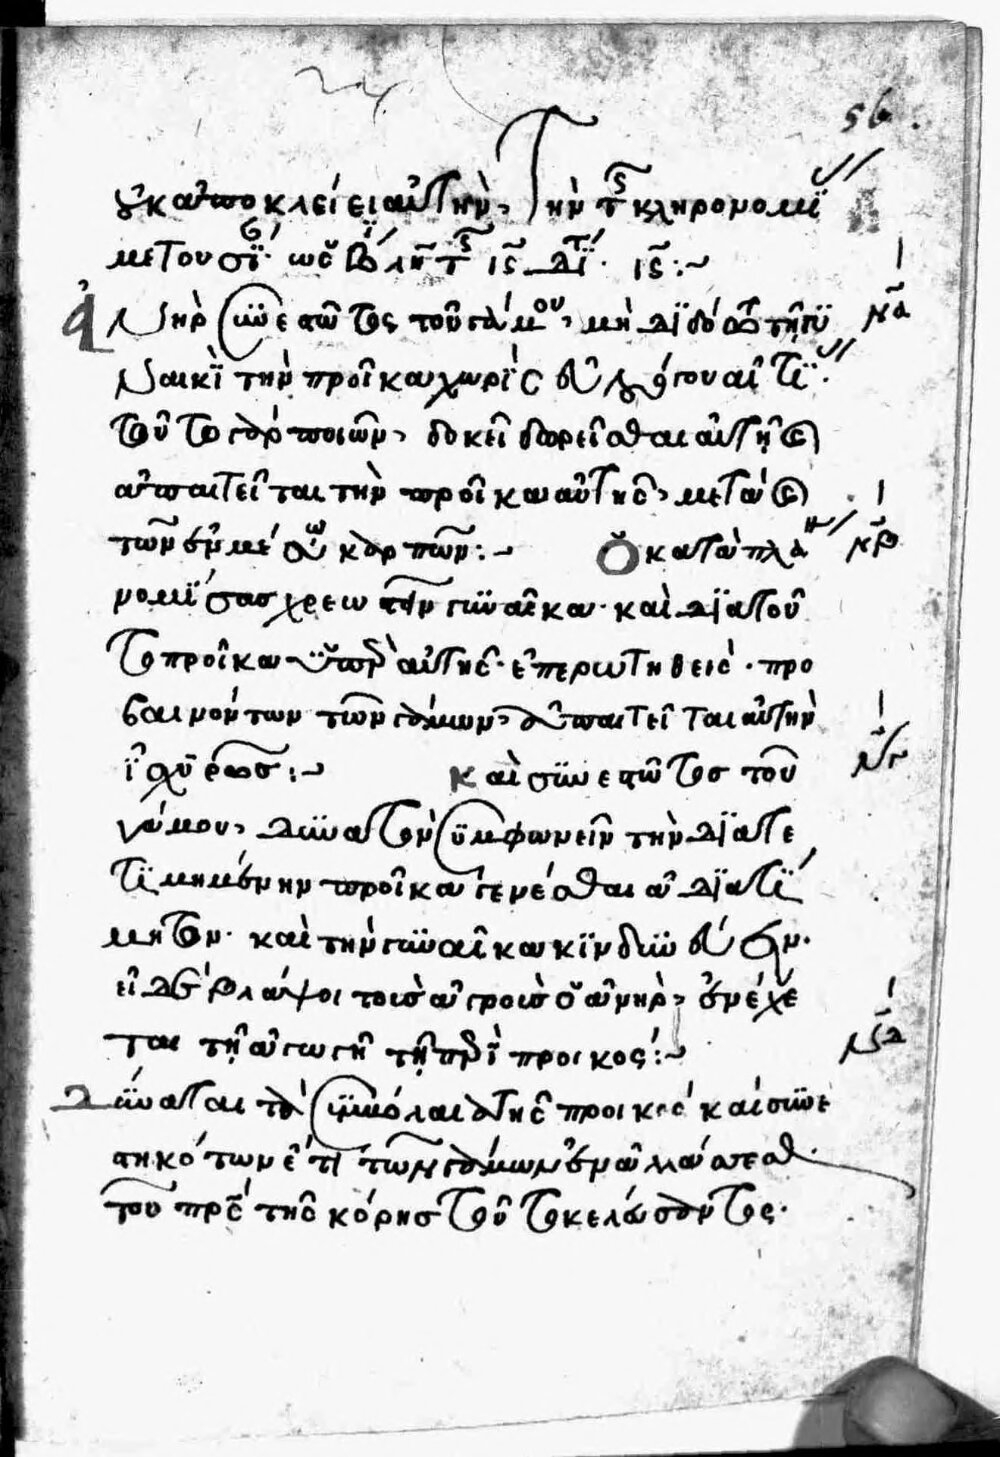 56
οὐκ ἀποκλείει αὐτὴν, τὴν τῆς κληρονομι
μετουσί· ὡς βι λη τ ις δι τ ις :~
Ἀνὴρ συνεστῶτος τοῦ γάμου, μὴ διδότω τῇ γυ
ναικὶ τὴν προῖκα χωρὶς εὐλόγου αἰτί·
τοῦτο γὰρ ποιῶν, δοκεῖ δωρεῖσθαι αὐτῇ καὶ
ἀπαιτεῖται τὴν προῖκα αὐτῆς, μετὰ καὶ
τῶν ἐν μέσω καρπῶν :~ Ὁ κατὰ πλάνην
νβ
νομίσας χρεωστεῖν γυναῖκα· καὶ διὰ τοῦ
το προῖκα ὑπὲρ αὐτῆς· ἐπερωτηθεὶς· προ
βαινόντων τῶν γάμων, ἀπαιτεῖται αὐτὴν
ἰσχυρῶς :~ καὶ συνεστῶτος τοῦ
νγ
γάμου, δυνατὸν συμφωνεῖν τὴν διατε
τιμημένην προῖκα γενέσθαι ἀδιατί
μητον· καὶ τὴν γυναῖκα κινδυνεύειν·
εἰ δὲ βλάψοι τοὺς ἀγροὺς ὁ ἀνὴρ, ἐνέχε
ται τῇ ἀγωγῇ τῇ περὶ προικός :~
νδ
Δύναται τὰ συμβόλαια τῆς προικὸς καὶ συνε
στηκότων ἔτι τῶν γάμων ἐναλλάττεσθ·
τοῦ πρς τῆς κόρης τοῦτο κελεύσαντος·